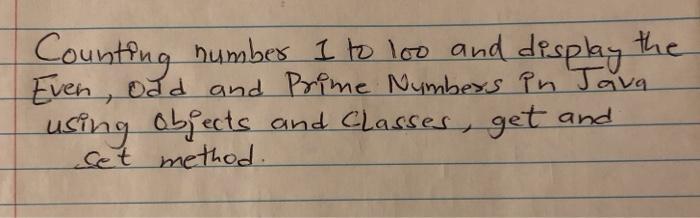 Counting number 1 to 100 and display the
Even, odd and Prime Numbers in Java
using objects and Classes, get and
set method.